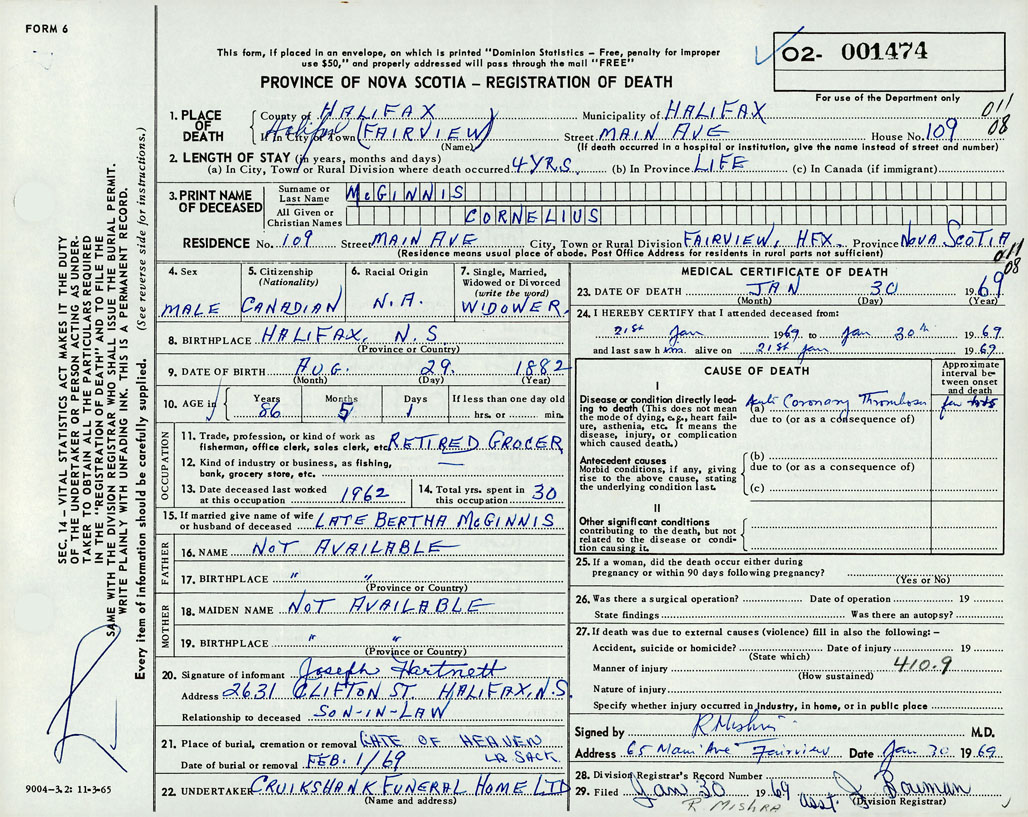 FORM 6
This form, if placed in an envelope, on which is printed "Dominion Statistics – Free, penalty for improper
use $50," and properly addressed will pass through the mail "FREE"
PROVINCE OF NOVA SCOTIA – REGISTRATION OF DEATH
O2- 001474
For use of the Department only
011
08
1. PLACE OF DEATH
County of HALIFAX Municipality of HALIFAX
If in City or Town (FAIRVIEW) Street MAIN AVE House No. 109
(Name) (If death occurred in a hospital or institution, give the name instead of street and number)
2. LENGTH OF STAY (in years, months and days)
(a) In City, Town or Rural Division where death occurred 4 YRS. (b) In Province LIFE (c) In Canada (if immigrant)
3. PRINT NAME OF DECEASED
Surname or Last Name McGINNIS
All Given or Christian Names CORNELIUS
RESIDENCE No. 109 Street MAIN AVE City, Town or Rural Division FAIRVIEW, HFX. Province NOVA SCOTIA
(Residence means usual place of abode. Post Office Address for residents in rural parts not sufficient)
011
08
4. Sex
MALE
5. Citizenship
(Nationality)
CANADIAN
6. Racial Origin
N.A.
7. Single, Married,
Widowed or Divorced
(write the word)
WIDOWER
8. BIRTHPLACE HALIFAX, N.S.
(Province or Country)
9. DATE OF BIRTH AUG. 29. 1882
(Month) (Day) (Year)
10. AGE in Years Months Days If less than one day old
86 5 1 hrs. or min.
OCCUPATION
11. Trade, profession, or kind of work as
fisherman, office clerk, sales clerk, etc. RETIRED GROCER
12. Kind of industry or business, as fishing,
bank, grocery store, etc. —
13. Date deceased last worked
at this occupation 1962
14. Total yrs. spent in
this occupation 30
15. If married give name of wife
or husband of deceased LATE BERTHA McGINNIS
FATHER
16. NAME NOT AVAILABLE
17. BIRTHPLACE " "
(Province or Country)
MOTHER
18. MAIDEN NAME NOT AVAILABLE
19. BIRTHPLACE " "
(Province or Country)
20. Signature of informant Joseph Hartnett
Address 2631 CLIFTON ST. HALIFAX, N.S.
Relationship to deceased SON-IN-LAW
21. Place of burial, cremation or removal GATE OF HEAVEN
LR. SACK.
Date of burial or removal FEB. 1/69
22. UNDERTAKER CRUIKSHANK FUNERAL HOME LTD
(Name and address)
MEDICAL CERTIFICATE OF DEATH
23. DATE OF DEATH JAN 30 1969
(Month) (Day) (Year)
24. I HEREBY CERTIFY that I attended deceased from:
21st Jan 1969 to Jan 30th 1969
and last saw him alive on 21st Jan 1969
CAUSE OF DEATH
Approximate
interval be-
tween onset
and death
I
Disease or condition directly lead-
ing to death (This does not mean
the mode of dying, e.g., heart fail-
ure, asthenia, etc. It means the
disease, injury, or complication
which caused death.)
(a) Acute Coronary Thrombosis few
due to (or as a consequence of)
Antecedent causes
Morbid conditions, if any, giving
rise to the above cause, stating
the underlying condition last.
(b)
due to (or as a consequence of)
(c)
II
Other significant conditions
contributing to the death, but not
related to the disease or condi-
tion causing it.
25. If a woman, did the death occur either during
pregnancy or within 90 days following pregnancy?
(Yes or No)
26. Was there a surgical operation? Date of operation 19
State findings Was there an autopsy?
27. If death was due to external causes (violence) fill in also the following: –
Accident, suicide or homicide? Date of injury 19
(State which)
Manner of injury 410.9
(How sustained)
Nature of injury
Specify whether injury occurred in industry, in home, or in public place
Signed by R Mishra M.D.
Address 65 Main Ave Fairview Date Jan 30 1969
28. Division Registrar's Record Number
29. Filed Jan 30 1969 asst. J Bowman
R. MISHRA (Division Registrar)
SEC. 14 – VITAL STATISTICS ACT MAKES IT THE DUTY
OF THE UNDERTAKER OR PERSON ACTING AS UNDER-
TAKER TO OBTAIN ALL THE PARTICULARS REQUIRED
IN THE "REGISTRATION OF DEATH" AND TO FILE THE
SAME WITH THE DIVISION REGISTRAR WHO SHALL ISSUE THE BURIAL PERMIT.
WRITE PLAINLY WITH UNFADING INK. THIS IS A PERMANENT RECORD.
Every item of information should be carefully supplied. (See reverse side for instructions.)
9004-3.2: 11-3-65